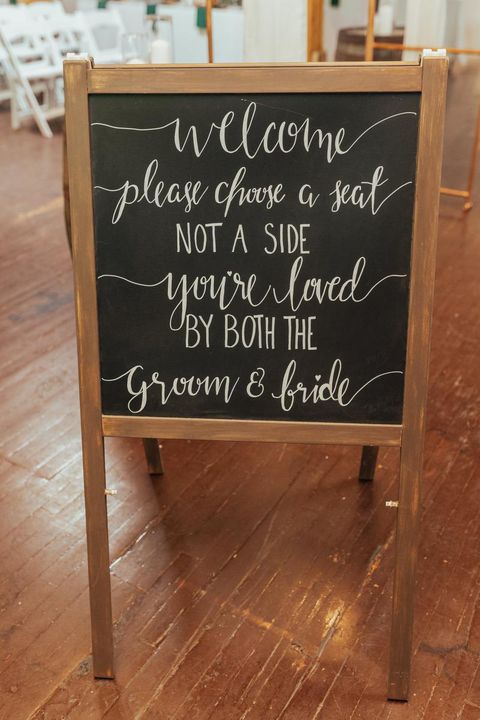 welcome
please choose a seat
NOT A SIDE
you're loved
BY BOTH THE
Groom & bride